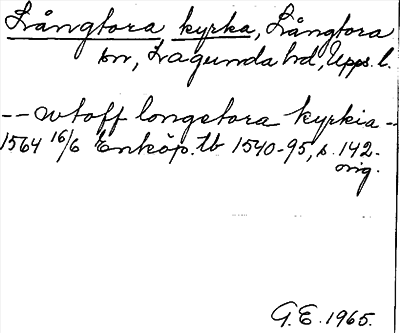 Långtora kyrka, Långtora
sn, Lagunda hd, Upps. l.
-- wtoff longetora kyrkia --
1564 16/6 Enköp. tb 1540-95, s. 142.
orig.
G.E. 1965.